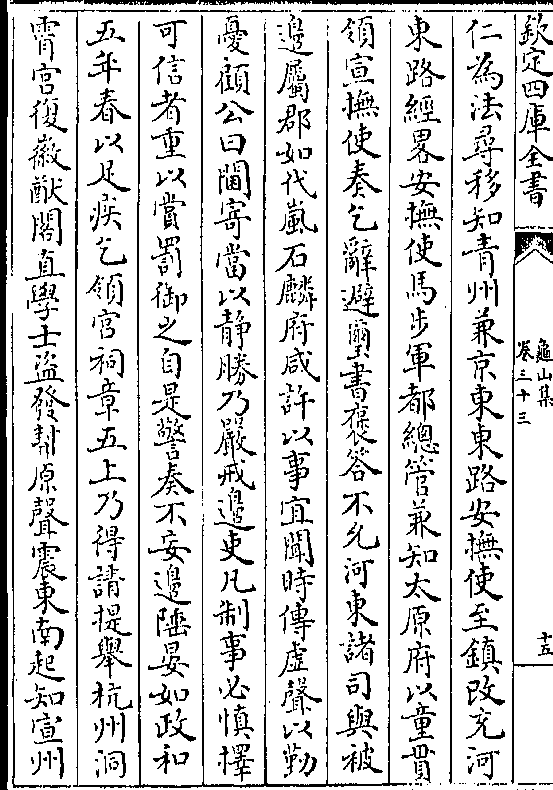 欽定四庫全書
龜山集
卷三十三
十五
仁為法尋移知青州兼京東東路安撫使至鎮改充河
東路經畧安撫使馬步軍都總管兼知太原府以童貫
領宣撫使奏乞辭避璽書褒答不允河東諸司與被
邊屬郡如代嵐石麟府咸許以事宜聞時傳虛聲以勤
憂顧公曰閫寄當以静勝乃嚴戒邊吏凡制事必慎擇
可信者重以賞罰御之自是警奏不妄邊陲晏如政和
五年春以足疾乞領宮祠章五上乃得請提舉杭州洞
霄宮復徽猷閣直學士盜發幇原聲震東南起知宣州